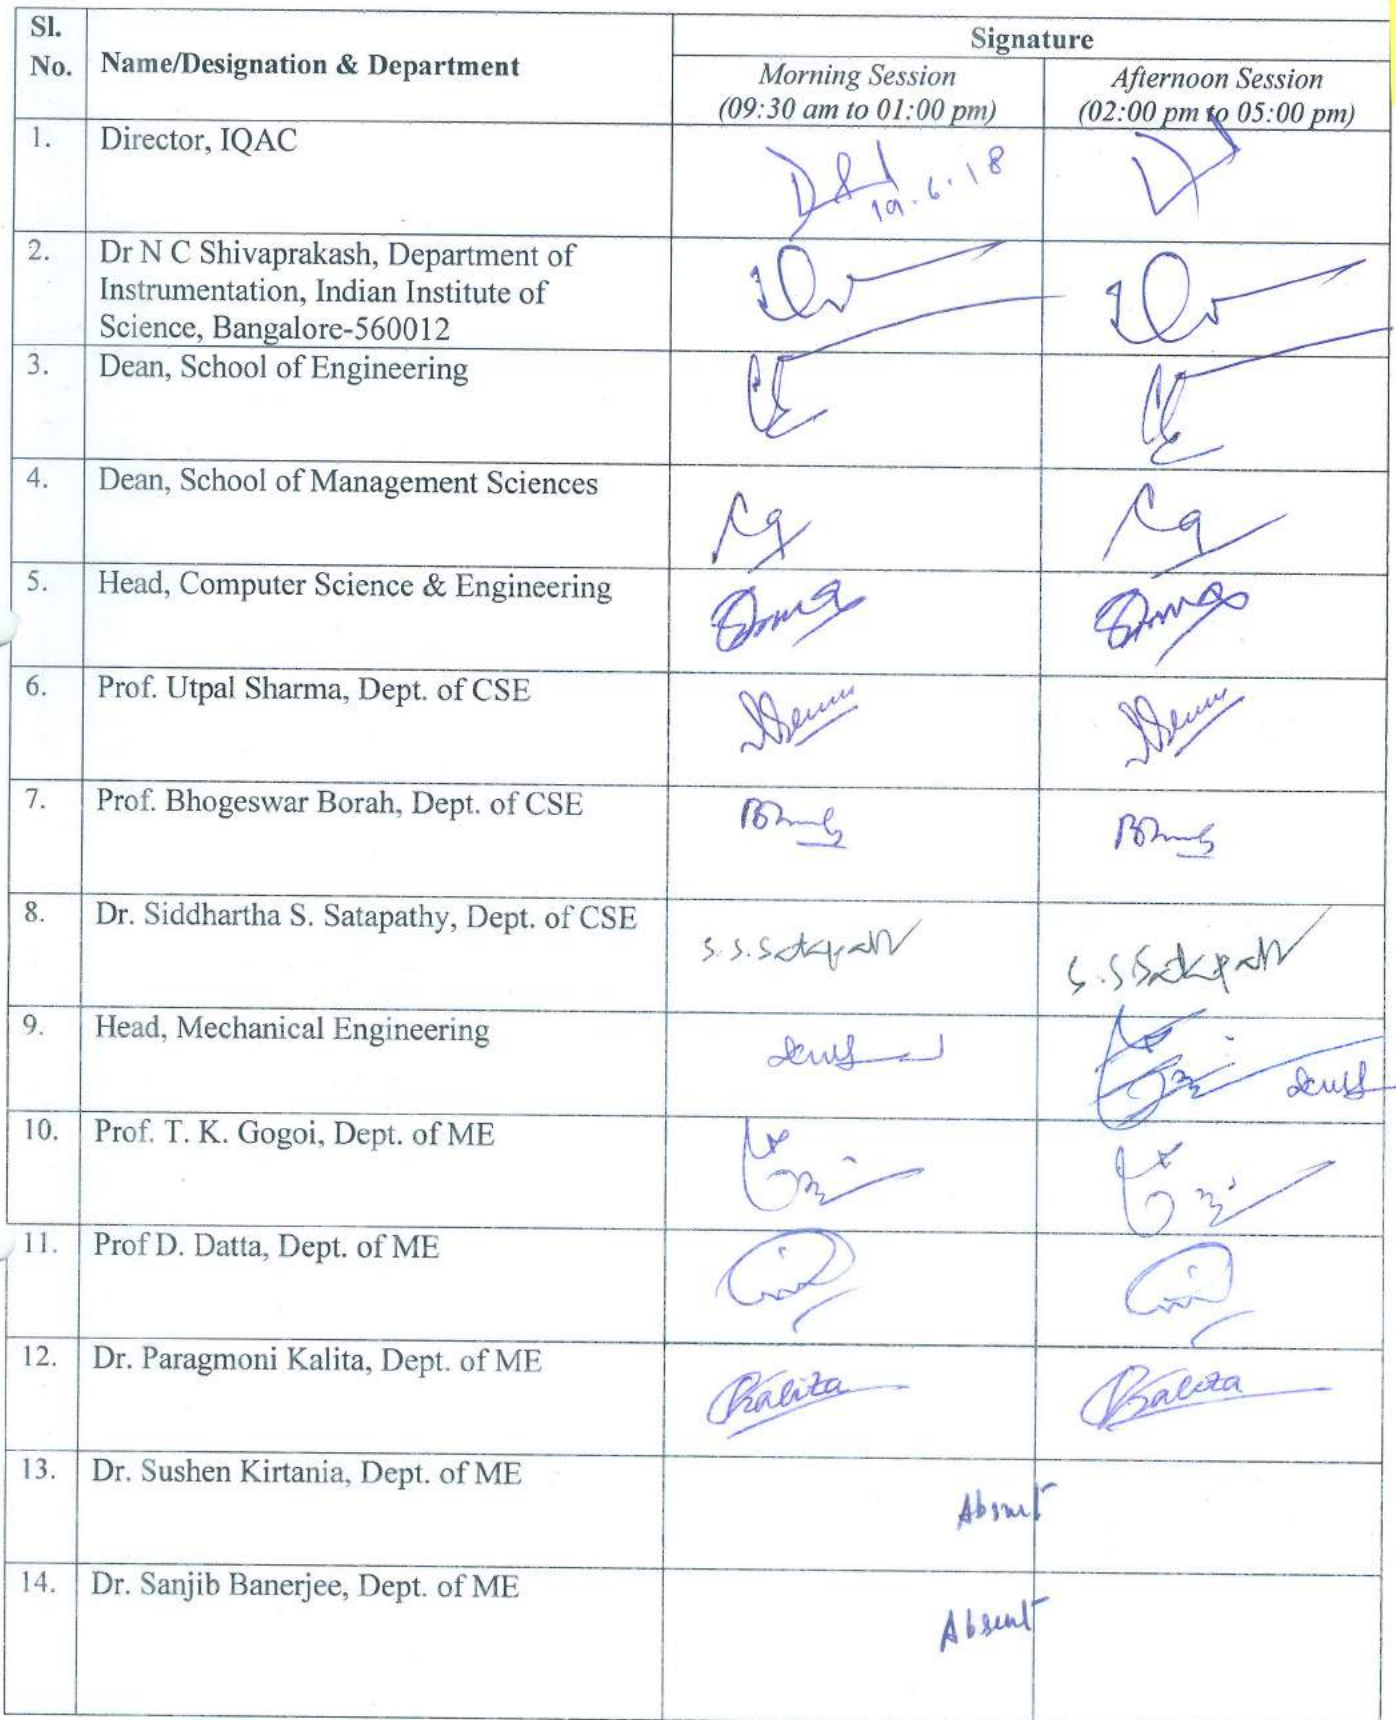 Sl.
No.
Name/Designation & Department
Signature
Morning Session
(09:30 am to 01:00 pm)
Afternoon Session
(02:00 pm to 05:00 pm)
1.
Director, IQAC
19.6.18
2.
Dr N C Shivaprakash, Department of
Instrumentation, Indian Institute of
Science, Bangalore-560012
3.
Dean, School of Engineering
4.
Dean, School of Management Sciences
5.
Head, Computer Science & Engineering
6.
Prof. Utpal Sharma, Dept. of CSE
7.
Prof. Bhogeswar Borah, Dept. of CSE
8.
Dr. Siddhartha S. Satapathy, Dept. of CSE
S.S.Satapathy
S.S Satapathy
9.
Head, Mechanical Engineering
10.
Prof. T. K. Gogoi, Dept. of ME
11.
Prof D. Datta, Dept. of ME
12.
Dr. Paragmoni Kalita, Dept. of ME
PKalita
PKalita
13.
Dr. Sushen Kirtania, Dept. of ME
Absent
14.
Dr. Sanjib Banerjee, Dept. of ME
Absent